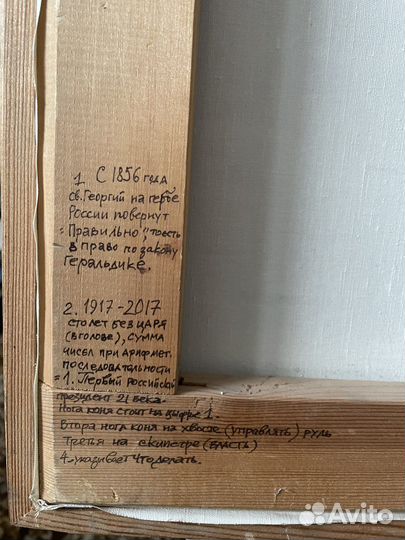 1. С 1856 года
св. Георгий на гербе
России повернут
"Правильно", тоесть
в право по закону
Геральдике.
2. 1917-2017
столет без царя
(в голове), сумма
чисел при арифмет.
последовательности
=1. Первый российский
президент 21 века.
Нога коня стоит на цыфре 1.
Втора нога коня на хвосте (управлять) руль
Третья на скипстре (власть)
4_указивает что делать.
Avito